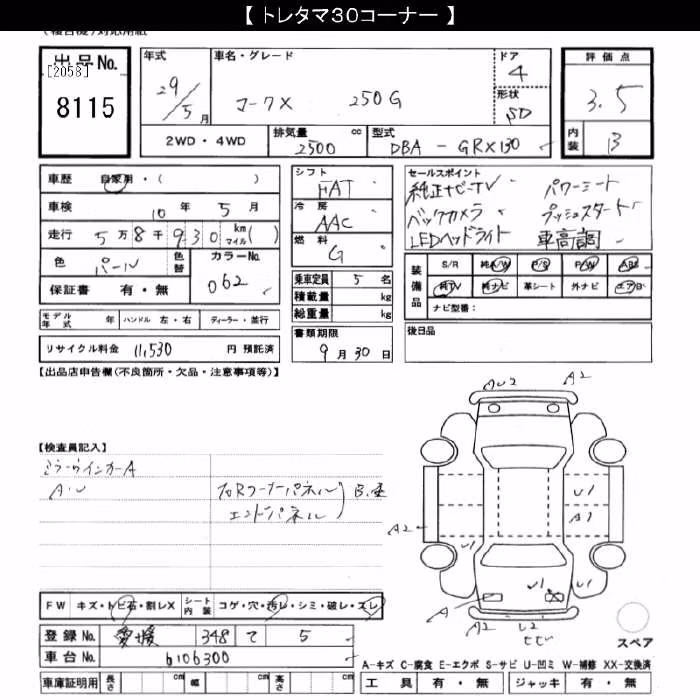 【 トレタマ30コーナー 】
(複合)対応用紙
出品No. [2058] 8115
年式 29/5月
車名・グレード マークX 250G
ドア 4
形状 SD
評価点 3.5
内装 B
2WD・4WD
排気量 2500 cc
型式 DBA - GRX130
車歴 自家用・( )
車検 10年 5月
走行 5万8千930 km マイル( )
色 パール 色替 カラーNo. 062
保証書 有・無
シフト FAT
冷房 AAC
燃料 G
乗車定員 5名
積載量 kg
総重量 kg
セールスポイント
純正ナビ-TV パワーシート
バックカメラ プッシュスタート
LEDヘッドライト 車高調
装備品 S/R 純A/W P/S P/W ABS
純TV 純ナビ 革シート 外ナビ エアB
ナビ型番:
モデル年式 年 ハンドル 左・右 ディーラー・並行
リサイクル料金 11,530 円 預託済
書類期限 9月30日
後日品
【出品店申告欄(不良箇所・欠品・注意事項等)】
AU2 A2
【検査員記入】
ミラーウインカーA
A・U
右Rコーナーパネル
エンドパネル
U1
A1
A2
U1
U1
A
A2
U2
FW キズ・トビ石・割レX シート内装 コゲ・穴・汚レ・シミ・破レ・スレ
登録No. 愛媛 348 て 5
車台No. 6106300
スペア
A-キズ C-腐食 E-エクボ S-サビ U-凹ミ W-補修 XX-交換済
車庫証明用 長さ cm 幅 cm 高さ cm
工具 有・無 ジャッキ 有・無